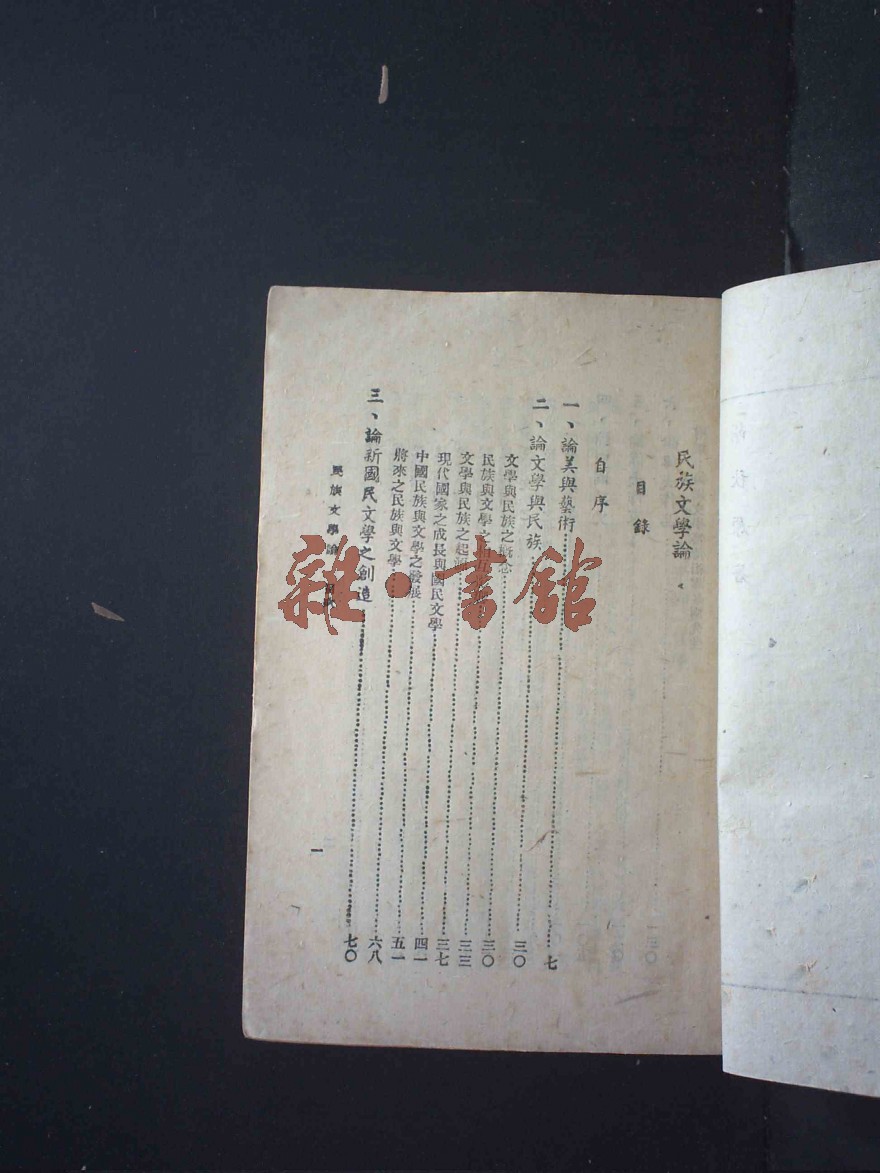 民族文學論
目錄
自序
一、論美與藝術……七
二、論文學與民族……三〇
文學與民族之概念……三〇
民族與文學之相互……三三
文學與民族之起……三七
現代國家之成長與國民文學……四一
中國民族與文學之發展……五一
將來之民族與文學……六八
三、論新國民文學之創造……七〇
民族文學論
一
雜·書館